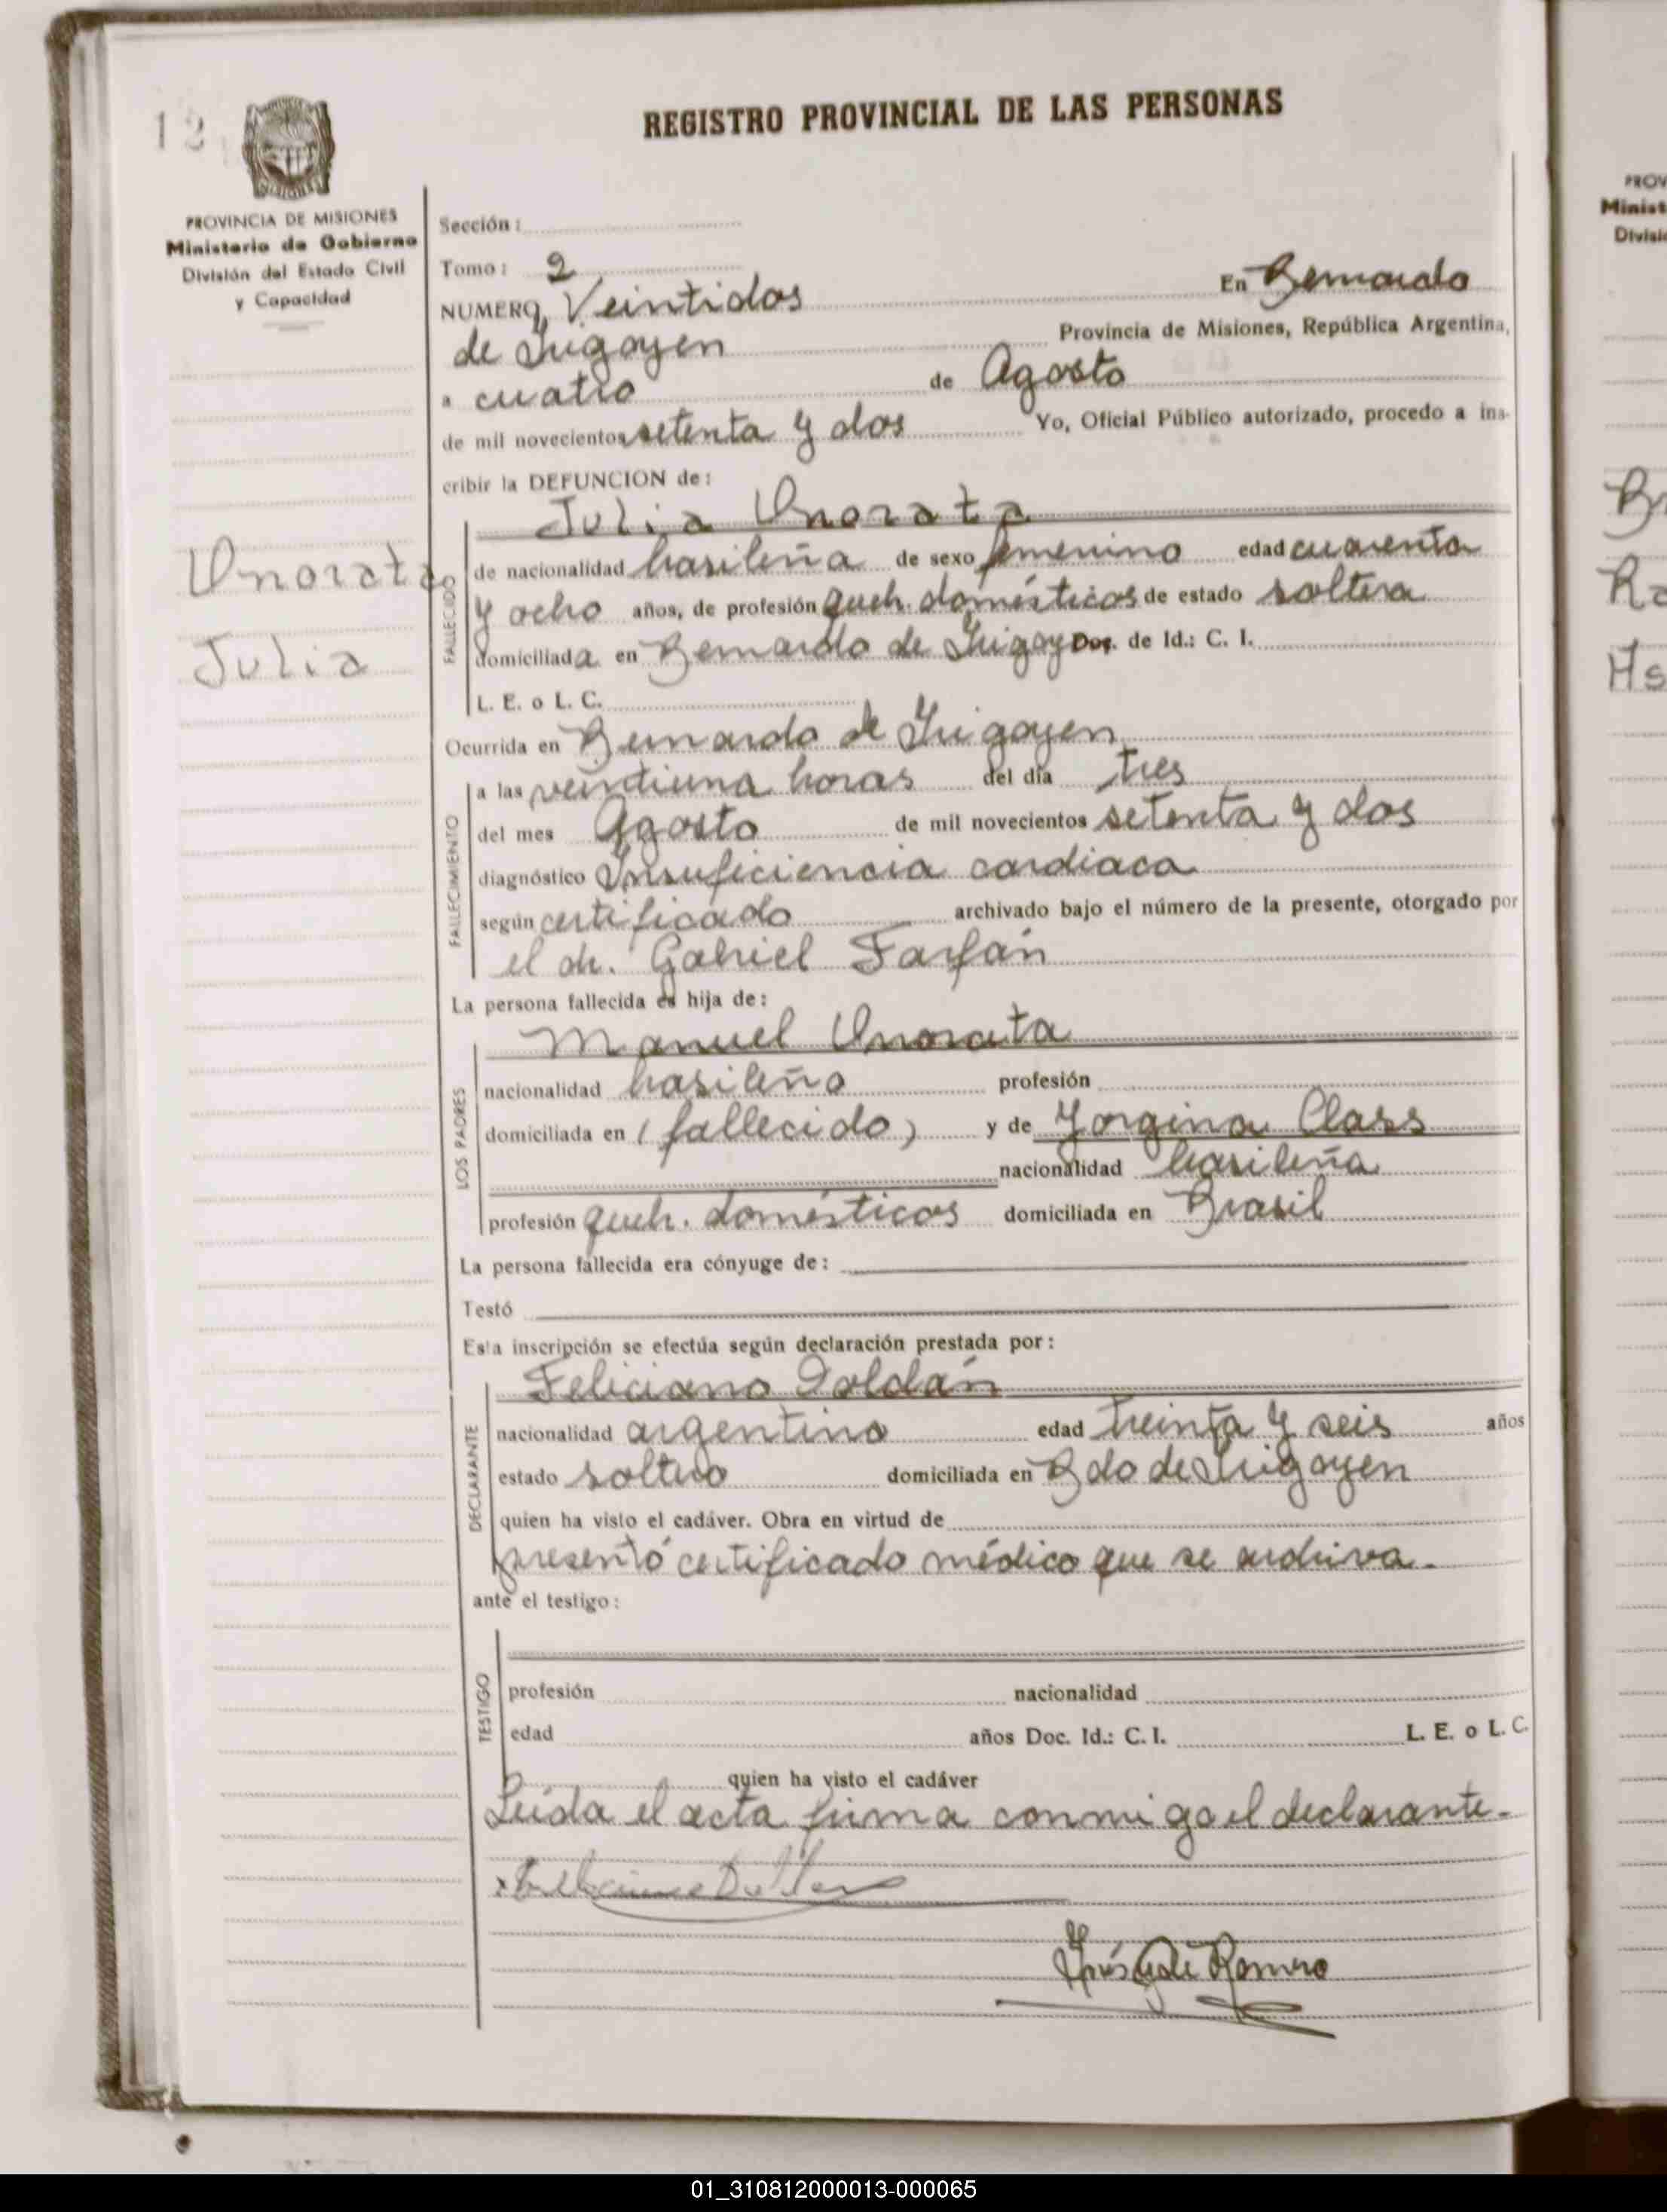 12
REGISTRO PROVINCIAL DE LAS PERSONAS
PROVINCIA DE MISIONES
Ministerio de Gobierno
División del Estado Civil
y Capacidad
Sección:
Tomo: 2
NUMERO, Veintidos En Bernardo
de Irigoyen Provincia de Misiones, República Argentina,
a cuatro de Agosto
de mil novecientos setenta y dos Yo, Oficial Público autorizado, procedo a ins-
cribir la DEFUNCION de:
Julia Onorata
Onorata
Julia
FALLECIDO
de nacionalidad brasileña de sexo femenino edad cuarenta
y ocho años, de profesión queh. domésticos de estado soltera
domiciliada en Bernardo de Irigoy Doc. de Id.: C. I.
L. E. o L. C.
Ocurrida en Bernardo de Irigoyen
FALLECIMIENTO
a las veintiuna horas del día tres
del mes Agosto de mil novecientos setenta y dos
diagnóstico Insuficiencia cardiaca
según certificado archivado bajo el número de la presente, otorgado por
el dr. Gabriel Farfán
La persona fallecida es hija de:
LOS PADRES
Manuel Onorata
nacionalidad brasileño profesión
domiciliada en (fallecido) y de Jorgina Class
nacionalidad brasileña
profesión queh. domésticos domiciliada en Brasil
La persona fallecida era cónyuge de:
Testó
Esta inscripción se efectúa según declaración prestada por:
DECLARANTE
Feliciano Doldán
nacionalidad argentino edad treinta y seis años
estado soltero domiciliada en Bdo de Irigoyen
quien ha visto el cadáver. Obra en virtud de
presentó certificado médico que se archiva.
ante el testigo:
TESTIGO
profesión nacionalidad
edad años Doc. Id.: C. I. L. E. o L. C.
quien ha visto el cadáver
Leída el acta firma conmigo el declarante.
Romero
PROV
Minist
Divisi
01_310812000013-000065